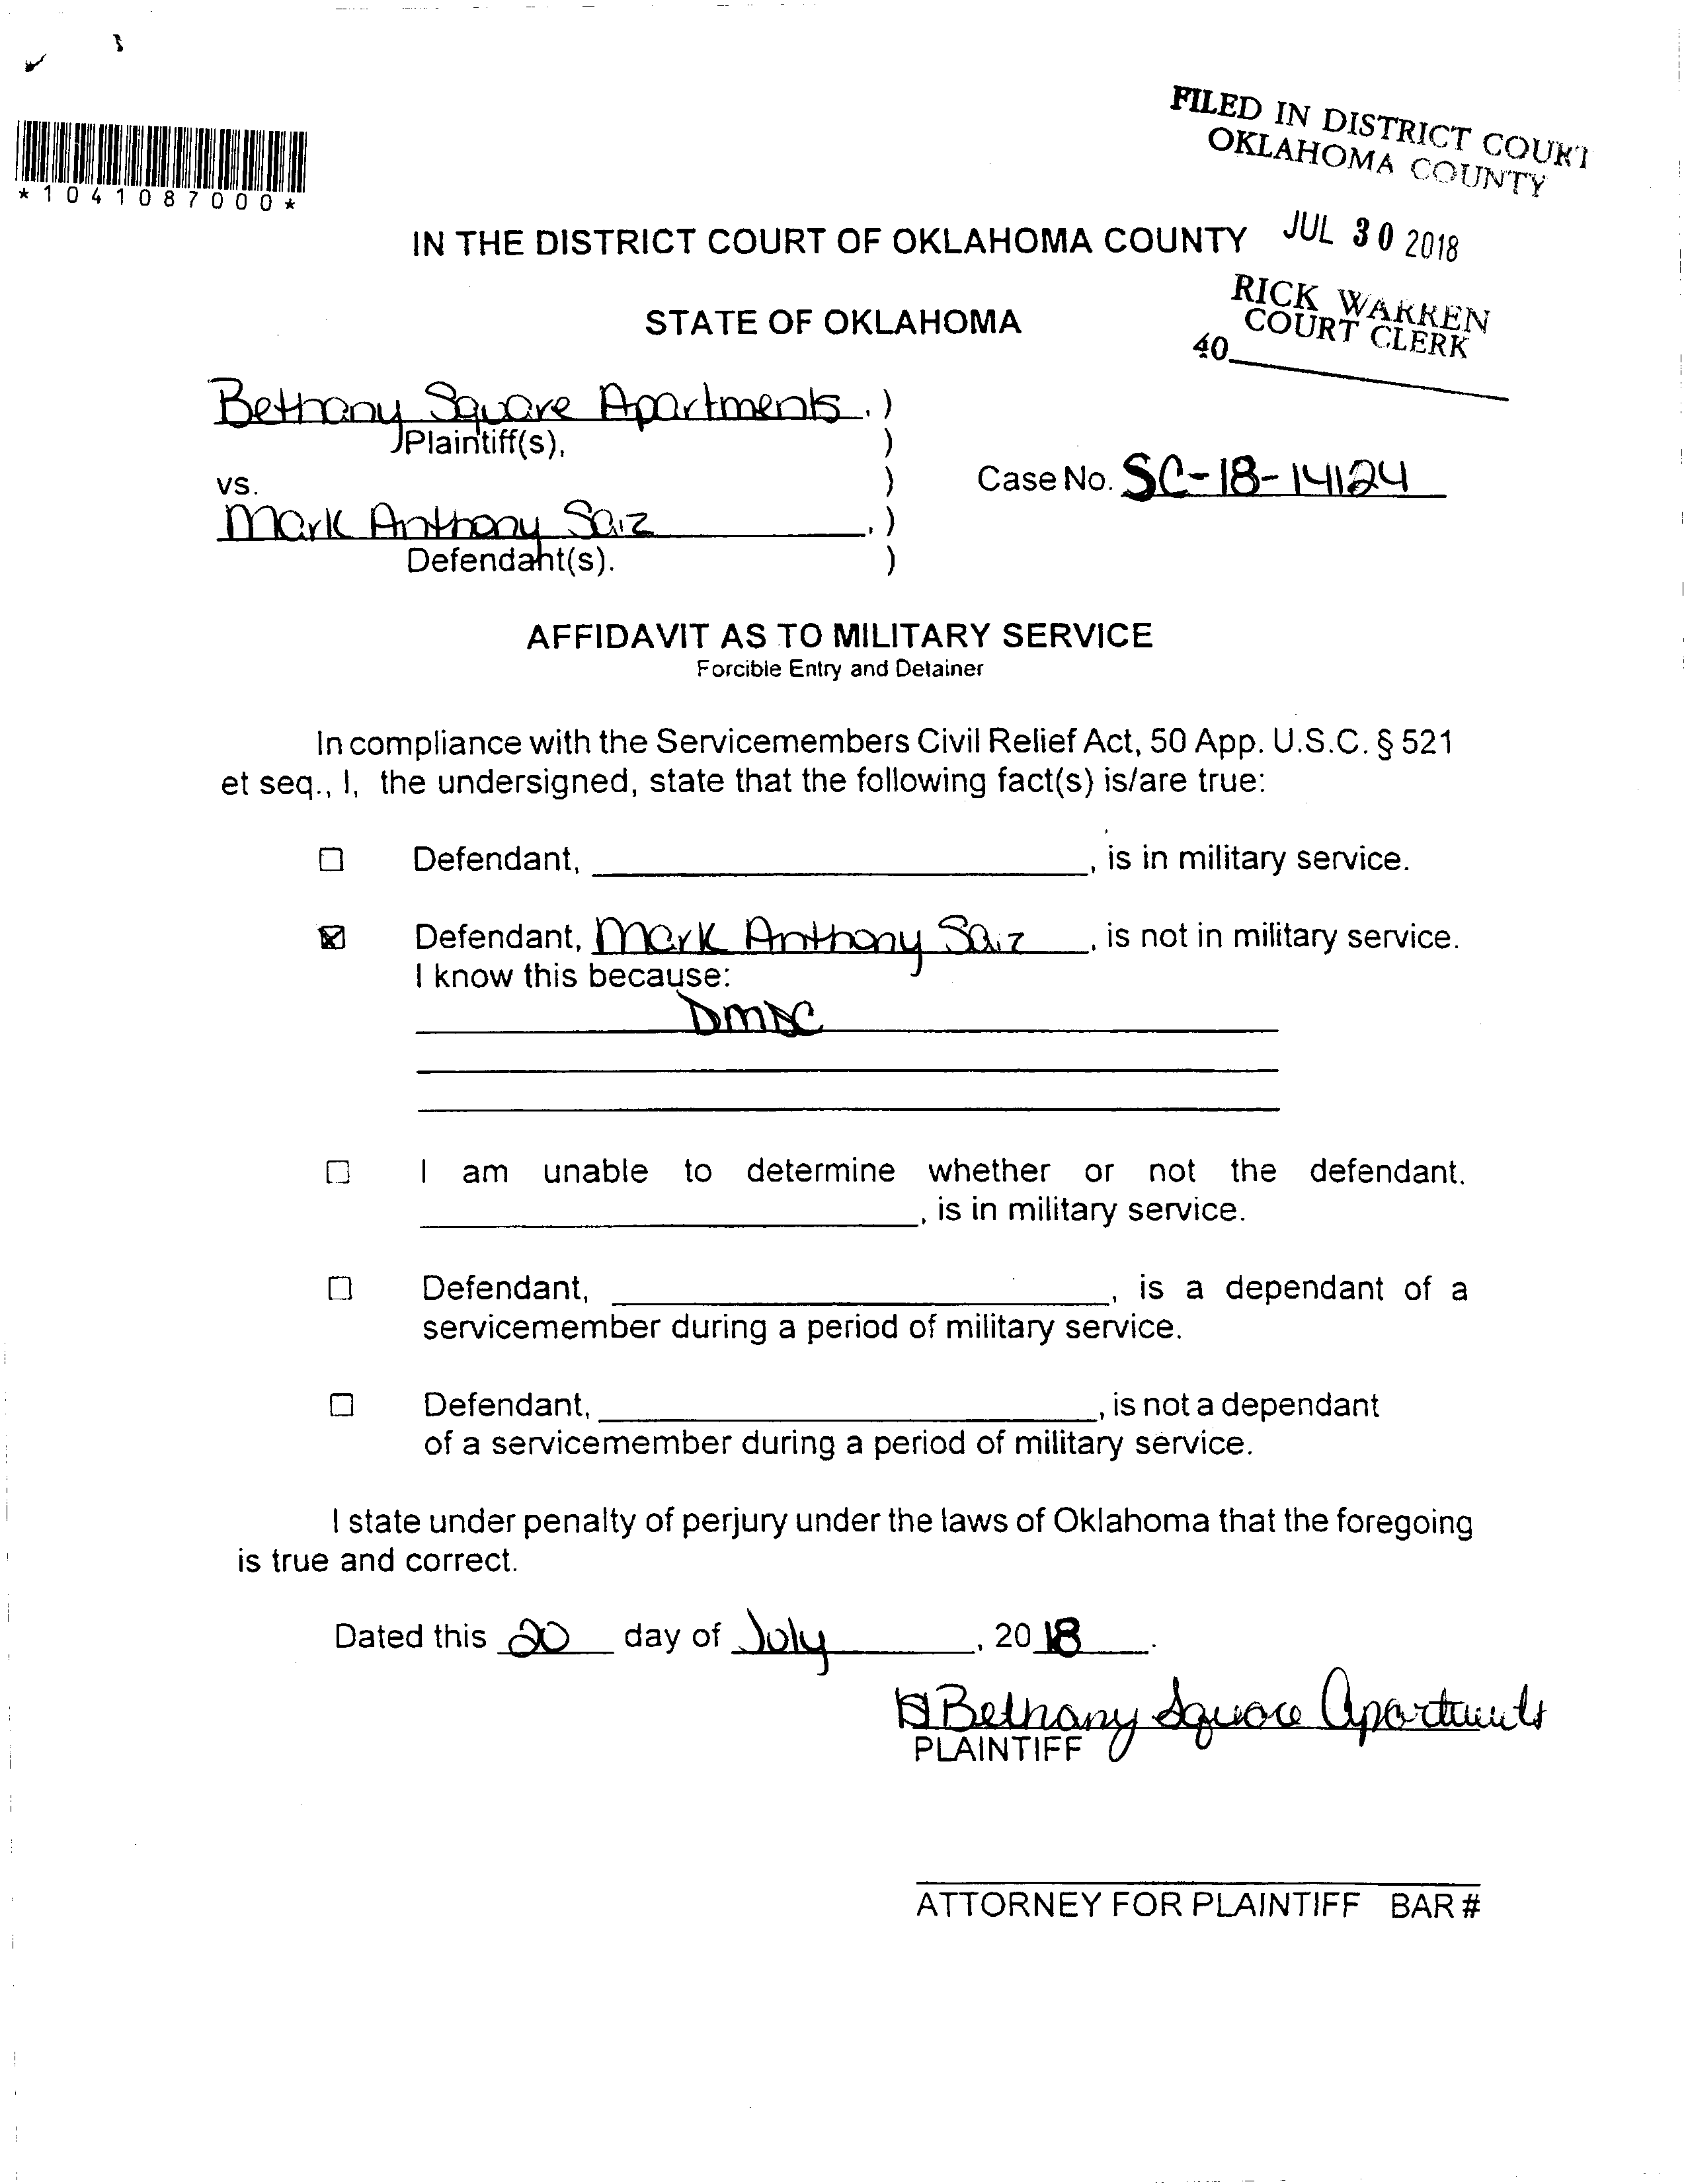 FILED IN DISTRICT COURT
OKLAHOMA COUNTY
*1041087000*
JUL 30 2018
IN THE DISTRICT COURT OF OKLAHOMA COUNTY
RICK WARREN
COURT CLERK
STATE OF OKLAHOMA
40
Bethany Square Apartments, )
Plaintiff(s), )
vs. )
Case No. SC-18-14124
Mark Anthony Saiz, )
Defendant(s). )
AFFIDAVIT AS TO MILITARY SERVICE
Forcible Entry and Detainer
In compliance with the Servicemembers Civil Relief Act, 50 App. U.S.C. § 521
et seq., I, the undersigned, state that the following fact(s) is/are true:
☐ Defendant, ____, is in military service.
☒ Defendant, Mark Anthony Saiz, is not in military service.
I know this because:
DMDC
☐ I am unable to determine whether or not the defendant.
____, is in military service.
☐ Defendant, ____, is a dependant of a
servicemember during a period of military service.
☐ Defendant, ____, is not a dependant
of a servicemember during a period of military service.
I state under penalty of perjury under the laws of Oklahoma that the foregoing
is true and correct.
Dated this 20 day of July, 2018.
Bethany Square Apartments
PLAINTIFF
ATTORNEY FOR PLAINTIFF BAR #